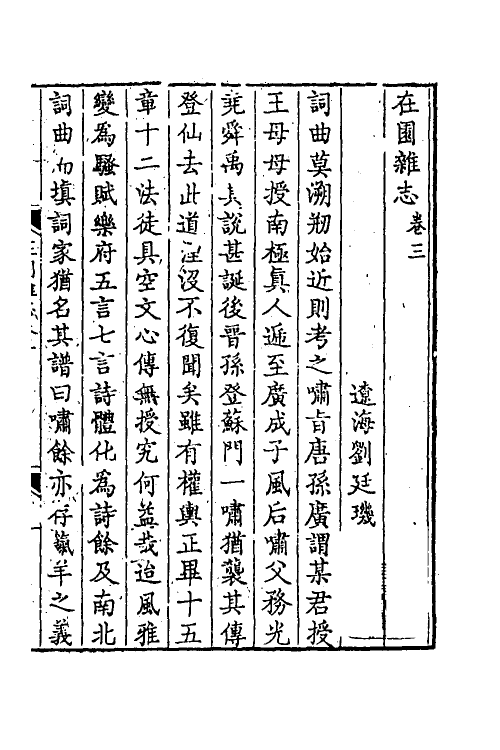 在園雜志 卷三
遼海劉廷璣
詞曲莫溯刱始近則考之嘯旨唐孫廣謂某君授
王母母授南極眞人遞至廣成子風后嘯父務光
堯舜禹其說甚誕後晉孫登蘇門一嘯猶襲其傳
登仙去此道湮沒不復聞矣雖有權輿正畢十五
章十二法徒具空文心傳無授究何益哉迨風雅
變爲騷賦樂府五言七言詩體化爲詩餘及南北
詞曲而塡詞家猶名其譜曰嘯餘亦存氣羊之義